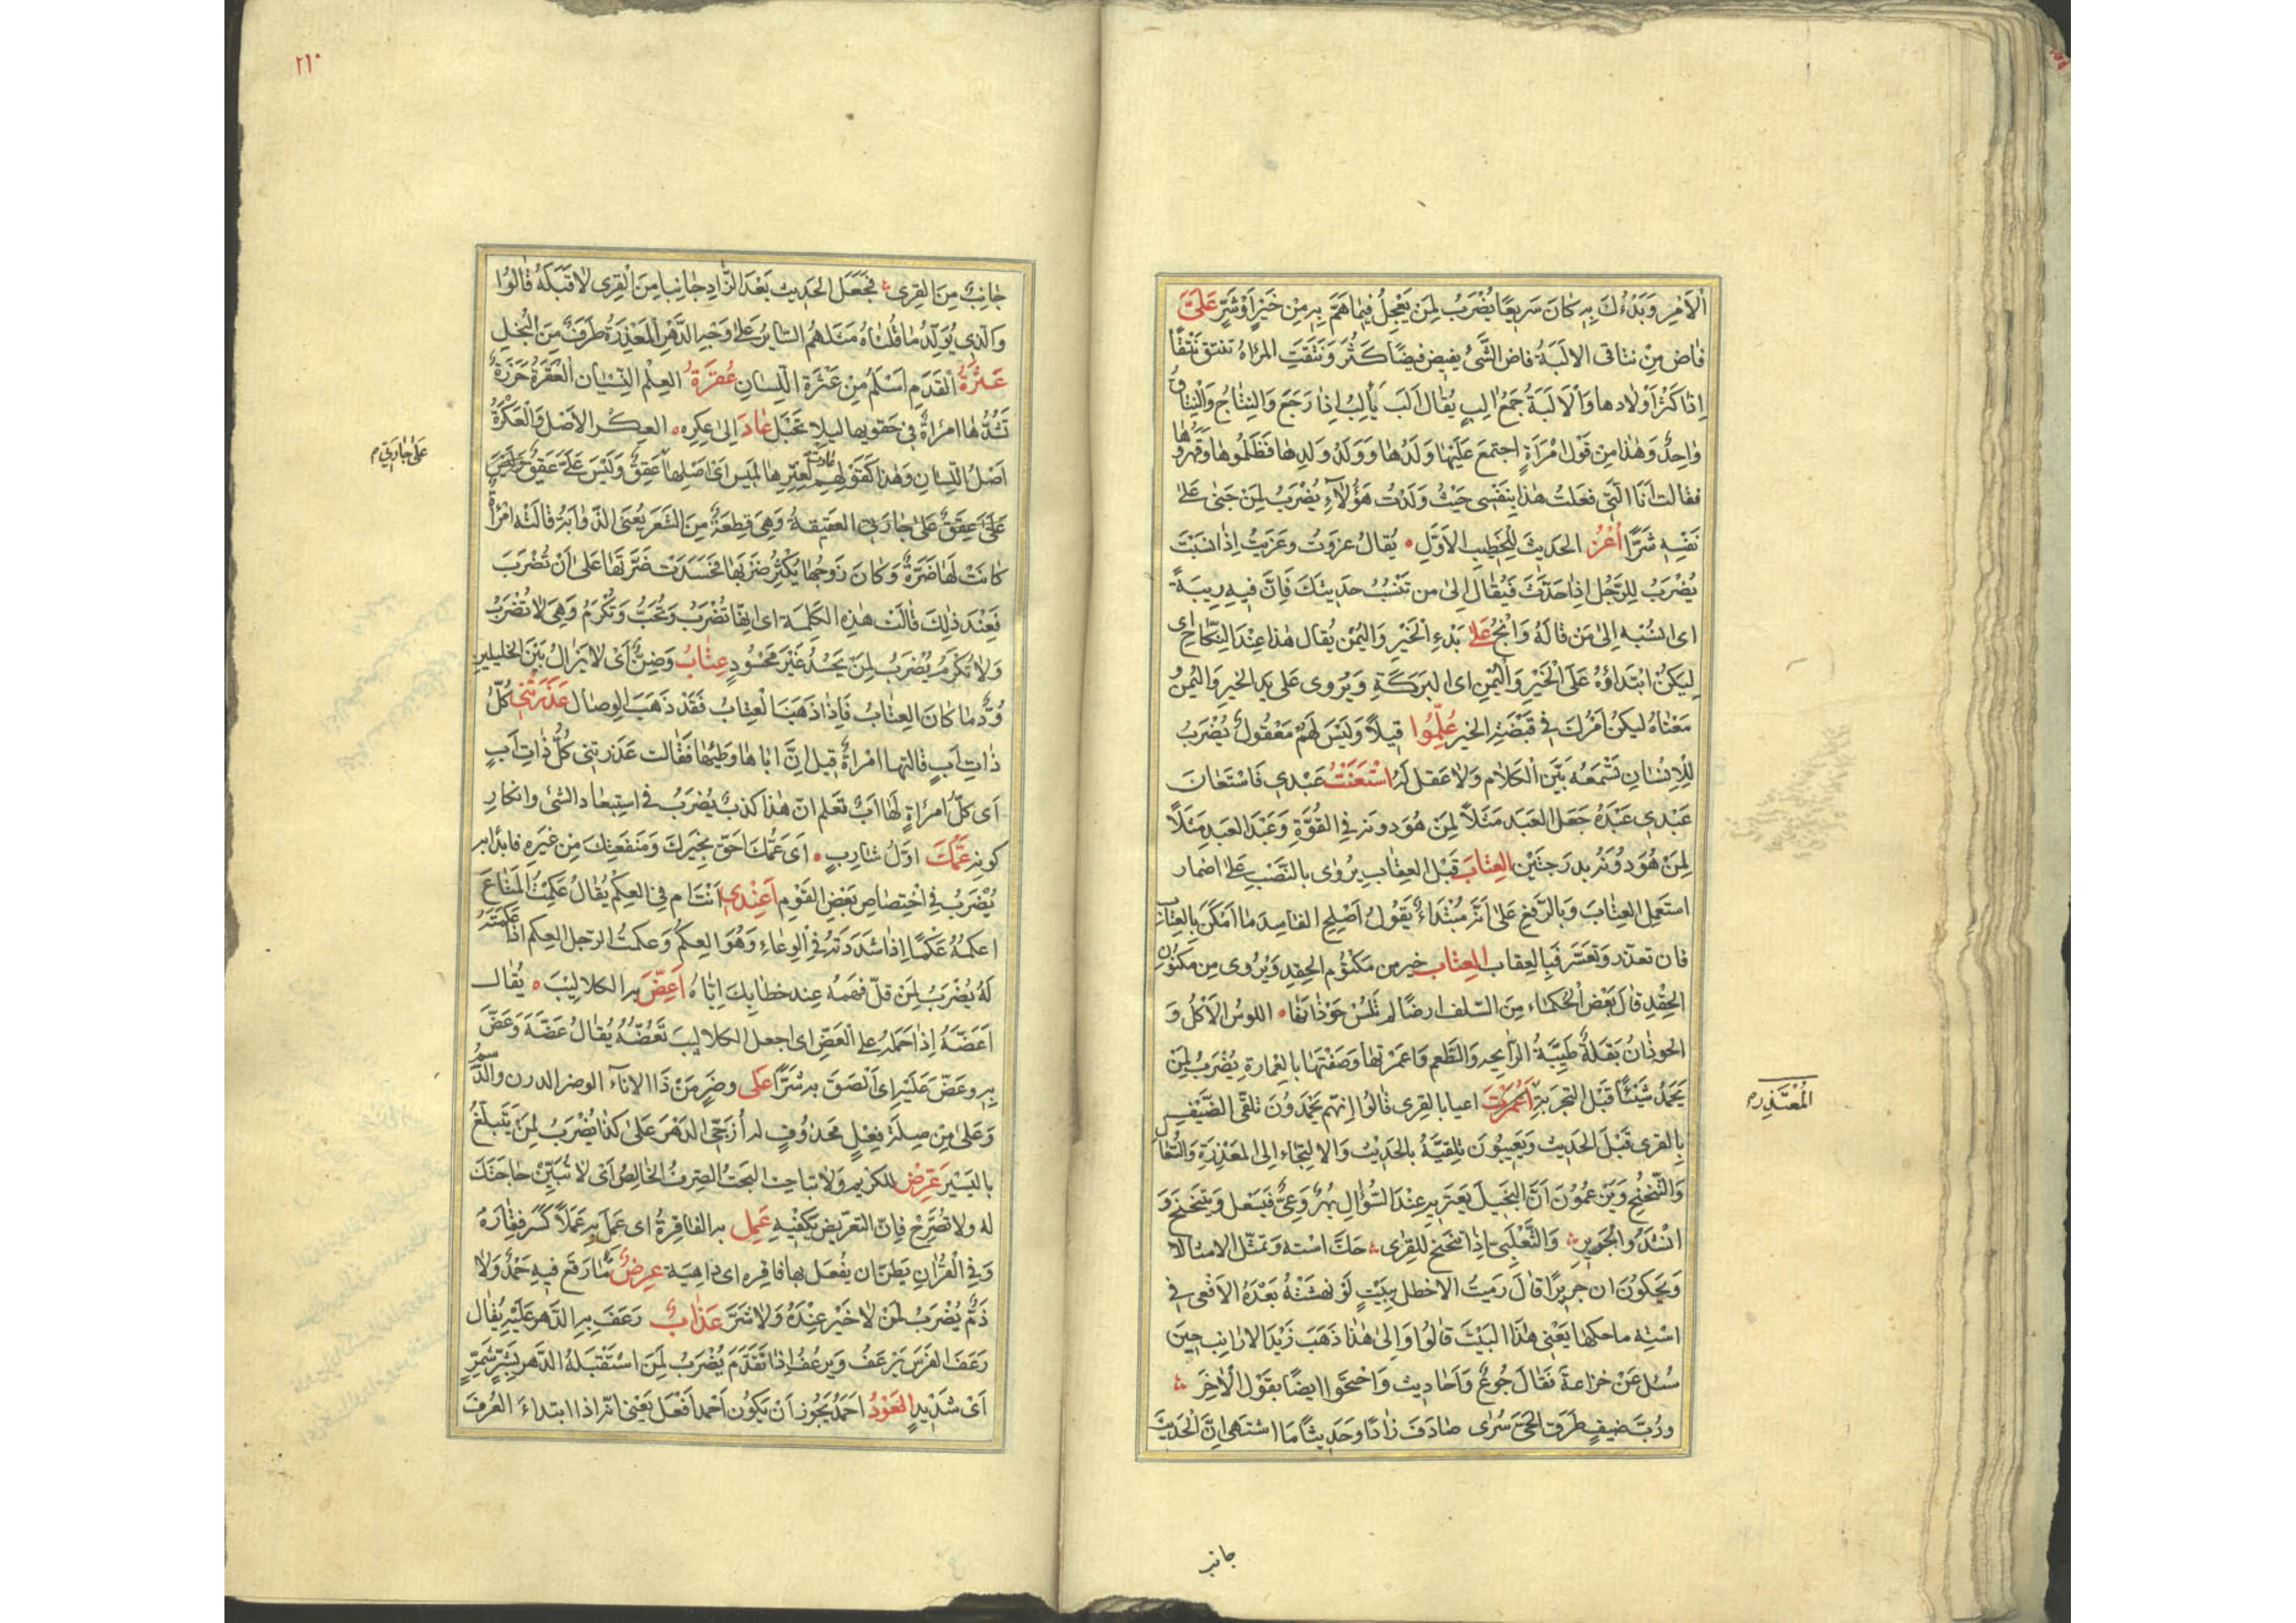 الاَمْرِ وَبَدْءُكَ بِهِ كَانَ سَرِيعًا يُضْرَبُ لِمَنْ يَعْجِلُ فِيمَا هَمَّ بِهِ مِنْ خَيْرٍ اَوْ شَرٍّ عَلَىَّ
فاض مِنْ نتاقى الالَبَةُ فاض الشَّئُ يفيض فيضًا كَثُرَ وَنَتَقَتِ المرْاة تنتق نَتْقًا
اِذا كثرْ اَوْلادها وَالاَلَبَةُ جَمْعُ الِبٍ يُقال اَلَبَ يَألِبُ اِذا رَجَعَ وَالنِتَاجُ وَالنِتاقُ
واحِدٌ وَهٰذا مِنْ قَوْل امْرَأةٍ اجتمعَ عَلَيْها وَلَدُها وَوَلَدُ وَلَدِها فَظَلَمُوها وَقَهَرُوها
فقالت اَنَا الَّتِى فعَلتُ هٰذا بِنَفْسى حَيْثُ وَلَدْت هٰؤُلاَءِ يُضْرَبُ لِمَنْ جَنىٰ عَلىٰ
نَفْسِه شَرًّا اُعْزُ الحَديثَ لِلْخَطِيبِ الاَوَّلِ يُقالُ عزَوتُ وعَزَيتُ اِذا نسَبْتَ
يُضْرَبُ لِلرَّجُل اِذا حَدَّثَ فَيُقال اِلىٰ من تَنْسُبُ حَدِيثكَ فَاِنَّ فِيهِ رِيبَةً
اى انسُبْه اِلىٰ مَن قالَهُ وَانْجُ عَلىٰ بَدْءِ الْخَيْرِ وَاليُمْن يُقال هٰذا عِنْدَ النِّكاحِ اى
لِيَكُنْ ابْتَداؤُهُ عَلَى الْخَيْرِ وَاليُمْنِ اى البَرَكَةِ وَيُروى عَلى يَدِ الخيرِ وَاليُمن وَ
مَعْناهُ ليكنْ اَمْرُكَ فى قَبْضَتِهِ الخير عُلِّمُوا قِيلاً وَلَيْسَ لَهُمْ مَعْقُولٌ يُضْرَبُ
لِلْاِنْسَان تَسْمَعُهُ بَيّنَ الْكَلام وَلا عَقل لَهُ اسْتَعَنْتُ عَبْدى فَاسْتَعَانَ
عَبْدى عَبْدَهُ جَعَلَ العَبدَ مَثَلاً لِمَنْ هُوَ دونه فى القُوَّةِ وَعَبْدَ العَبدِ مَثَلاً
لِمَنْ هُوَ دُونَهُ بدرَجتَيْن العِتابَ قَبْلَ العِقابِ يرُوى بالنَّصْبِ عَلىٰ اضمار
استعمِل العِتابَ وَبالرَّفعِ عَلىٰ اَنّهُ مُبْتَداءٌ يَقُولُ اَصْلِحِ الفاسِدَ ما اَمْكَنَ بِالعِتابِ
فان تعذّر وَتعَسَّر فَبِالعِقاب العِتاب خير من مَكتوُم الحِقدِ وَيُرْوى مِن مكنوُنِ
الحِقْدِ قالَ بَعْضُ الْحُكمَاء مِنَ السّلف ارضًا لم تُلَسْ حَوْذَانُها اللوسُ الاَكْلُ وَ
الحوذانُ بَقْلَةٌ طَيِّبَةُ الرّايحهِ وَالطَّعم وَاعمرتها وَصَفْتَها بالعِمارةِ يُضْرَبُ لِمَنْ
يَحْمَدُ شَيْئًا قَبْلَ التجرِبَةِ اَعْمَرْتَ اعيابا بالقِرى قالُوا اِنّهم يحمَدُونَ تلقّى الضَّيْفِ
بِالقِرى قَبْلَ الحَدِيث وَيَعِيبُونَ تلقِيَهُ بالحَدِيثِ وَالالتِجَاء اِلى المَعْذِرَةِ وَالسُّعَالِ
وَالتَّنَحْنُحِ وَيَزعُموُنَ اَنَّ البَخيلَ يَعْتَرِيهِ عِنْدَ السُّؤالِ بُهْرٌ وَعِىٌّ فَيَسْعل وَيَتنحْنحُ وَ
انشَدُوا لجَرِيرٍ وَالتَّغْلَبِىّ اِذا تنحْنحَ لِلقِرىٰ حَكَّ استَهُ وَتمثَّل الامثالا
وَيَحكُونَ ان جرِيرًا قالَ رَمَيتُ الاخطل بِبَيْتٍ لَوْ نهشَتْهُ بَعْدَهُ الاَفْعى فى
اسْتِه ما حكها يَعْنى هٰذَا البَيْتَ قالُوا وَاِلىٰ هٰذا ذَهَبَ زَيْدُ الارانِبِ حِينَ
سُئل عَنْ خزاعة فَقالَ جُوعٌ وَاَحادِيث وَاحْتَجُّوا ايضًا بقَوْل الاٰخِرَ
ورُبَّ ضيفٍ طرَقَ الحَىَّ سُرى صٰادَفَ زٰادًا وَحَديثًا مَا اشتهى اِنَّ الحَدِيثَ
المُعْتَذِرم
جانبٌ
٢١٠
جانِبٌ مِنَ القِرى فجَعَلَ الحَدِيث بَعْدَ الزَّادِ جَانِبا مِنَ القِرى لاٰ قَبْلَهُ قٰالوُا
وَالّذِى يُؤَيِّدُ ما قُلناهُ مَثَلهُم السّايرُ عَلىٰ وَجْهِ الدَّهرِ المَعْذِرَةُ طَرَفٌ مِنَ البُخلِ
عَثْرَةُ القَدَمِ اسْلَمُ مِنْ عَثْرَةِ اللِّسان عُقْرَةُ العِلْم النِّسْيَان العُقْرَةُ خَرَزَةٌ
تَشُدُّها امرَاةٌ فى حَقوَيها ليلا تحْبَل عَادَ اِلىٰ عِكرِه العِكْر الاَصْل وَالعَكَرَةُ
اَصْلُ اللّسان وَهٰذا كَقَوْلِهِم عادت لِعِتْرِها لميس اَىْ اصْلِها عَقِقٌ
عَلى جاريتى العقيقة وَهِىَ قِطعَةٌ مِنَ الشَّعَرِ يُعنىَ الذّوٰابةُ قالَتْه امْرَاةٌ
عَلى جاريتى م
كانَتْ لَها ضَرَّةٌ وَكانَ زَوجُها يُكْثِرُ ضَرْبَها فحَسَدَتْ ضَرَّتَها عَلىٰ اَنْ تُضْرَبَ
فَعِنْدَ ذٰلِكَ قالَتْ هٰذِهِ الكَلِمَة اى انّها تُضْرَبُ وَتُحَبُّ وَتُكْرَمُ وَهِىَ لا تُضْرَبُ
وَلا تُكْرَمُ يُضْرَبُ لِمَنْ يَحْسُدُ غَيْرَ مَحْسُودٍ عِتابُ وَضِنٌّ اَىْ لا يَزالُ بَيْنَ الخَليلَينِ
وُدٌّ ما كانَ العِتابُ فَاِذا ذَهَبَ العِتابُ فَقَدْ ذَهَبَ الوِصَال عَذَرَتْنى كُلُّ
ذاتِ اَبٍ قالتها امْراةٌ قيل اِنَّ اباها وَطِئها فَقالت عَذرتنى كُلُّ ذاتِ اَبٍ
اَى كلّ امراَةٍ لَها اَبٌ تعلم انّ هٰذا كذبٌ يُضْرَبُ فى استِبعاد الشئ وانكارِ
كونهِ عَمُّكَ اوّلُ شارِبٍ اَىْ عَمُّكَ احَقّ بخيرِكَ وَمَنفَعَتِكَ مِنْ غيَرِهِ فابدَأ به
يُضْرَبُ فى اخْتِصَاصِ بَعْضِ القَوْمِ اَعِنْدى اَنْتَ ام فى العِكْم يُقالُ عَكَمْتُ المَتاعَ
اعكمُهُ عَكْمًا اِذا شدَدتَهُ فى الوِعاءِ وَهُوَ العِكمُ وَعكمتُ الرّجلَ العِكم اذا عَكَمْتَهُ
لَهُ يُضْرَبُ لِمَنْ قلّ فهمُهُ عِند خطابِكَ اِيّاهُ اَعِضَّ بهِ الكلاليْبَ يُقال
اَعَضّهُ اِذا حَملَهُ على العَضِّ اى اجعل الكلاليبَ تعَضّهُ يُقالُ عَضَّهُ وَعَضَّ
بِهِ وعَضّ عَلَيْهِ اى اَلْصَقَ بهِ شَرًّا عَلى وضَرٍ مَنْ ذا الاناء الوضر الدرن والدّسَمُ
وَعَلىٰ مِنْ صِلَةِ فِعْلٍ مَحذوُفٍ اى اُزَجّى الدَهْرَ عَلىٰ كذا يُضْرَبُ لِمَنْ يَتَبلّغُ
باليَسْير عَرِّضْ لِلكريمِ وَلا تباحِث البَحْتُ الصِرفُ الخالِصُ اَىْ لا تُبَيِّنْ حاجَتَكَ
له ولا تصَرّحْ فاِنّ التعريض يَكفْيهِ عَمِل بهِ الفاقِرةُ اى عَملَ بهِ عَمَلاً كسَر فِقارَهُ
وَفى القُرْانِ يَظنّ ان يفعل بها فاقِره اى داهِيَة عِرضٌ ما وَقَعَ فيهِ حَمْدٌ وَلا
ذَمٌّ يُضْرَبُ لمَنْ لا خَيْرَ عِنْدَهُ وَلا شَرَّ عَذابٌ رَعَفَ بهِ الدَّهر عَلَيْهِ يُقال
رَعَفَ الفرَسُ يَرعَفُ وَيرعُفُ اِذا تَقَدّمَ يُضْرَبُ لِمَن استَقْبَلهُ الدَّهر بشَرٍّ شِمِرٍّ
اَىْ شَدِيْدٍ العَوْدُ احَمَدُ يَجُوز اَنْ يَكوُن اَحْمد اَفْعَل يَعْنى انّه اذا ابتداءَ العُرفَ